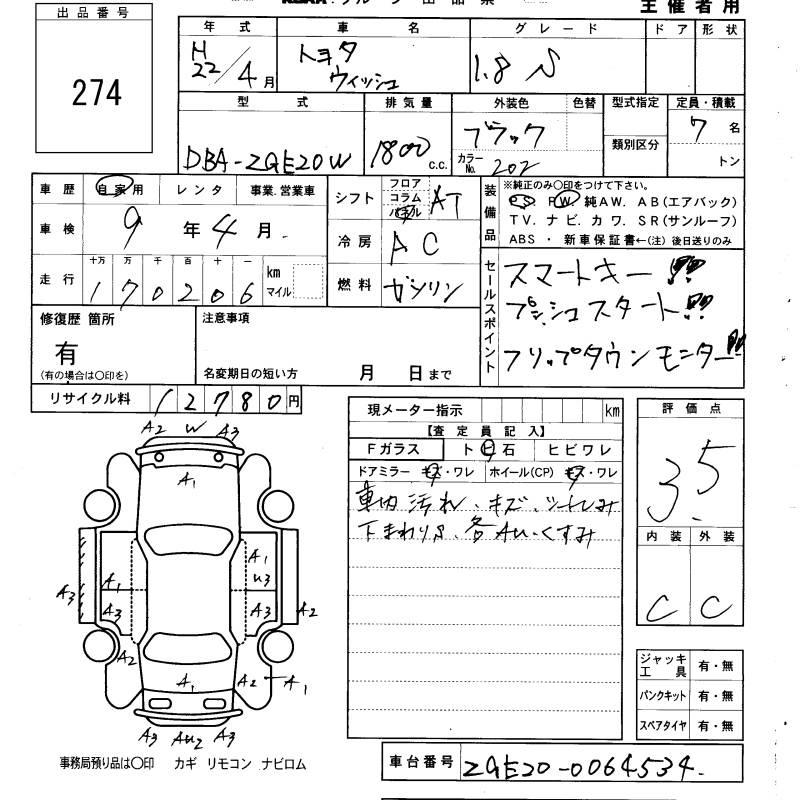 出品番号
274
主催者用
年式 車名 グレード ドア 形状
H22/4月 トヨタ ウィッシュ 1.8 S
型式 排気量 外装色 色替 型式指定 定員・積載
DBA-ZGE20W 1800 c.c. ブラック 類別区分 7名
カラーNo. 202 トン
車歴 自家用 レンタ 事業.営業車
車検 9年4月
走行 十万 万 千 百 十 一 km マイル
170206
シフト フロア コラム パネル AT
冷房 AC
燃料 ガソリン
装備品 ※純正のみ〇印をつけて下さい。
PS PW 純AW. AB(エアバック)
TV. ナビ. カワ. SR(サンルーフ)
ABS ・ 新車保証書←(注) 後日送りのみ
セールスポイント
スマートキー!!
プッシュスタート!!
フリップダウンモニター!!
修復歴 箇所
有
(有の場合は〇印を)
注意事項
名変期日の短い方 月 日まで
リサイクル料 12780円
A2 W A3
A1
A1
U3
A3 A1
A3 A3 A2
A2
A1 A2 A1
A3 AU2 A3
事務局預り品は〇印 カギ リモコン ナビロム
現メーター指示 km
【査定員記入】
Fガラス トビ石 ヒビワレ
ドアミラー キズ・ワレ ホイール(CP) キズ・ワレ
車内汚れ、キズ、シートしみ
下まわりS、各AU、くすみ
評価点
3.5
内装 外装
C C
ジャッキ工具 有・無
パンクキット 有・無
スペアタイヤ 有・無
車台番号 ZGE20-0064534.